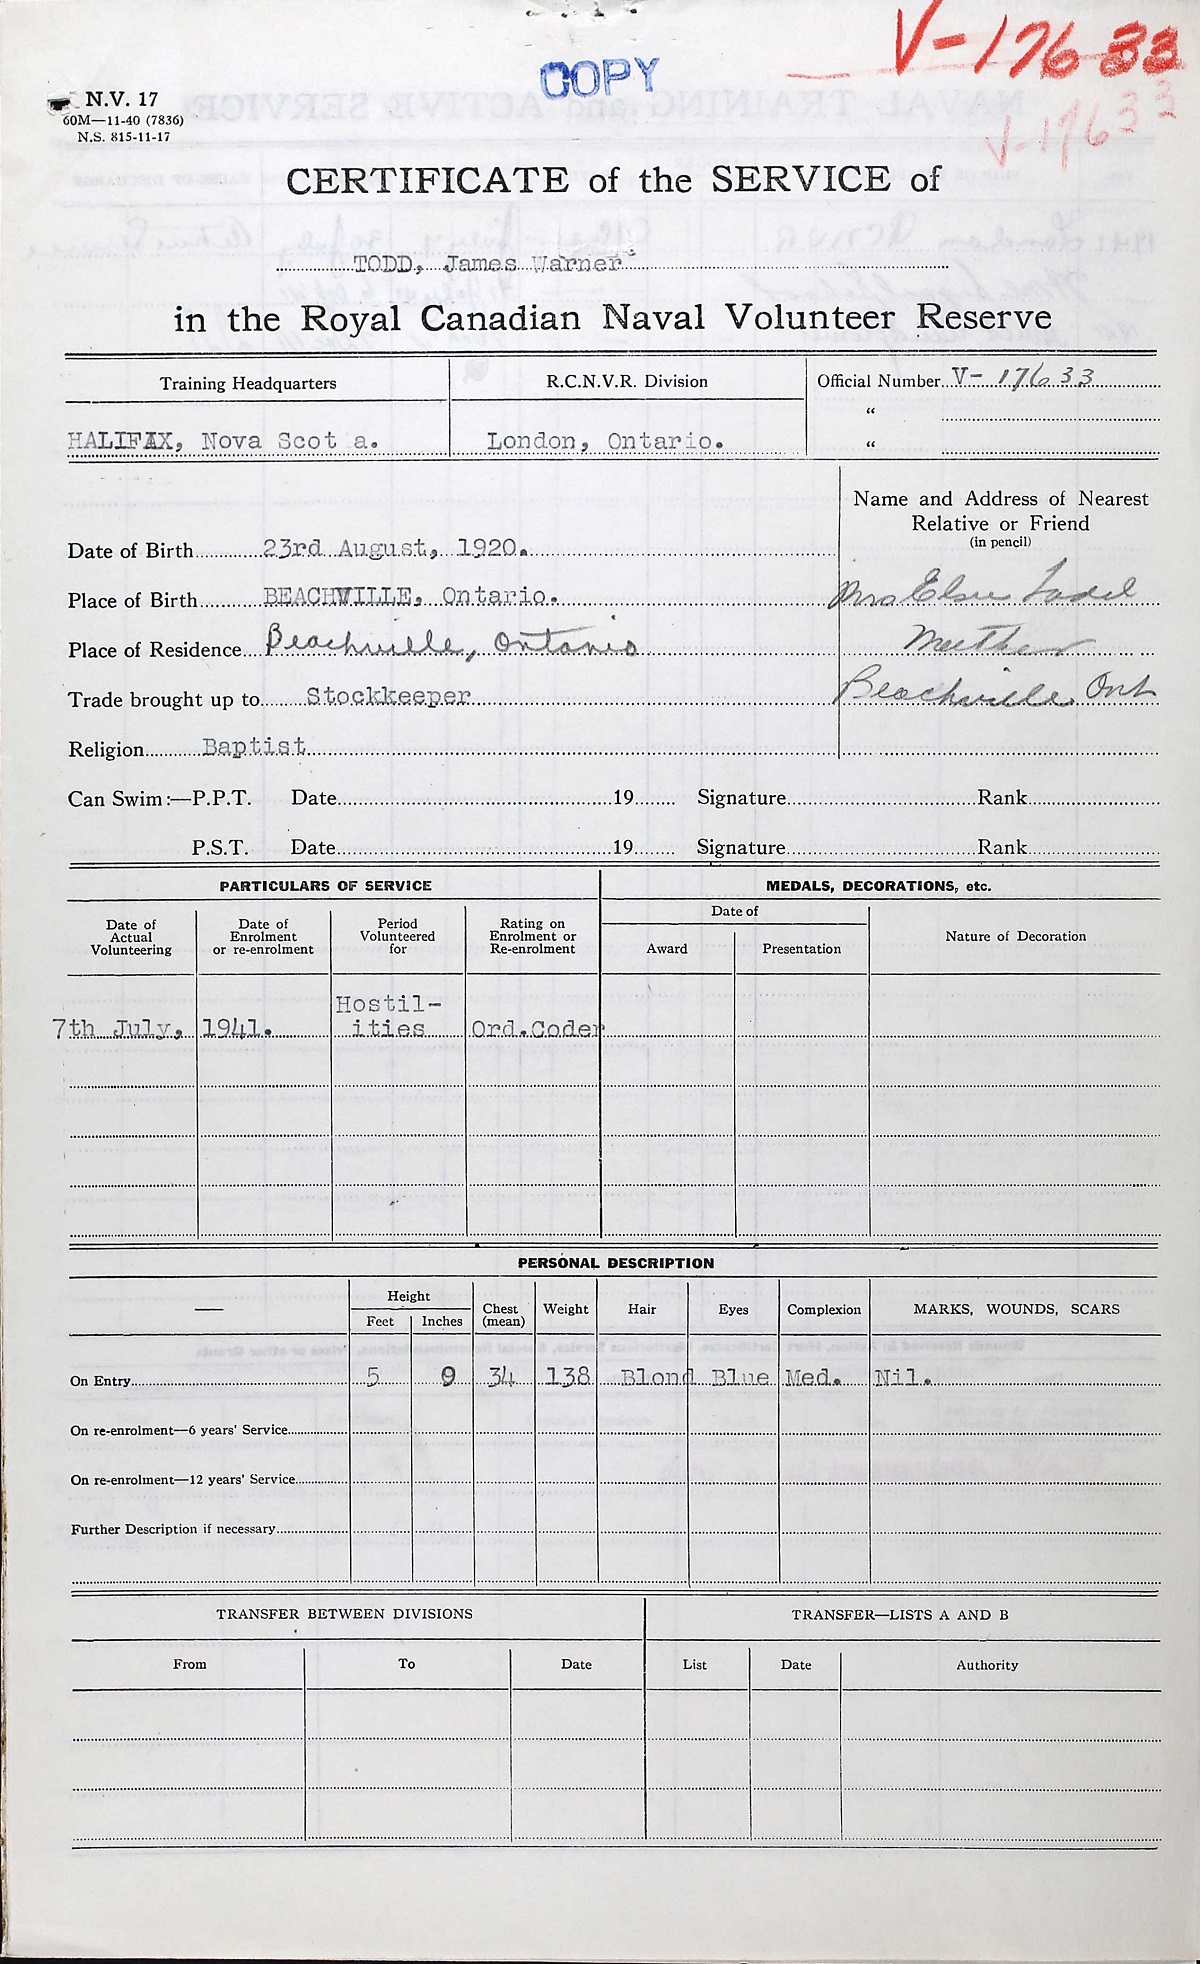 V-17633
COPY
V-17633
N.V. 17
60M—11-40 (7836)
N.S. 815-11-17
CERTIFICATE of the SERVICE of
TODD, James Warner
in the Royal Canadian Naval Volunteer Reserve
Training Headquarters
R.C.N.V.R. Division
Official Number V- 17633
"
HALIFAX, Nova Scot a.
London, Ontario.
"
Name and Address of Nearest
Relative or Friend
(in pencil)
Date of Birth 23rd August, 1920.
Place of Birth BEACHVILLE, Ontario.
Mrs Elsie Todd
Place of Residence Beachville, Ontario
Mother
Trade brought up to Stockkeeper
Beachville Ont
Religion Baptist
Can Swim:—P.P.T. Date 19 Signature Rank
P.S.T. Date 19 Signature Rank
PARTICULARS OF SERVICE
MEDALS, DECORATIONS, etc.
Date of Actual Volunteering
Date of Enrolment or re-enrolment
Period Volunteered for
Rating on Enrolment or Re-enrolment
Date of
Award
Presentation
Nature of Decoration
Hostil-
7th July, 1941. ities Ord.Coder
PERSONAL DESCRIPTION
—
Height
Feet
Inches
Chest (mean)
Weight
Hair
Eyes
Complexion
MARKS, WOUNDS, SCARS
On Entry 5 9 34 138 Blond Blue Med. Nil.
On re-enrolment—6 years' Service
On re-enrolment—12 years' Service
Further Description if necessary
TRANSFER BETWEEN DIVISIONS
TRANSFER—LISTS A AND B
From To Date List Date Authority